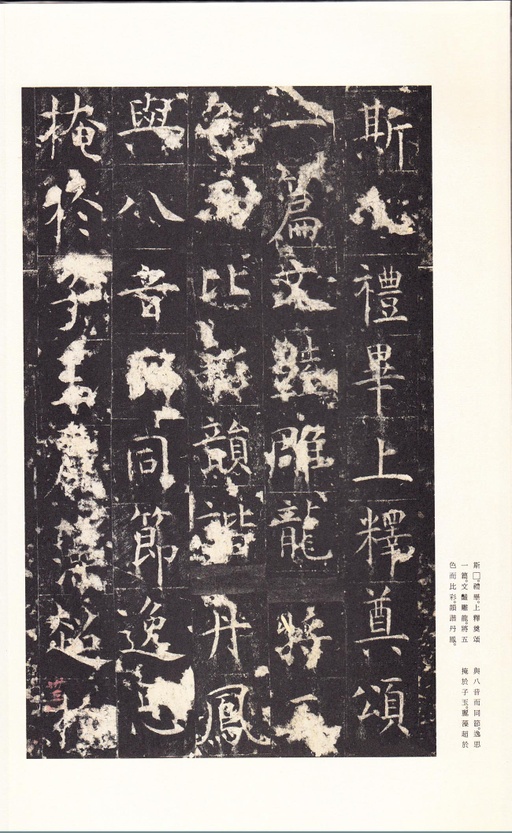 斯禮畢上釋奠頌
一篇文豔雕龍將五
色而比彩韻諧丹鳳
與八音而同節逸思
掩於子玉麗藻超於
斯□。禮畢、上釋奠頌
一篇。文豔雕龍、將五
色而比彩、韻諧丹鳳、
與八音而同節。逸思
掩於子玉、麗藻超於